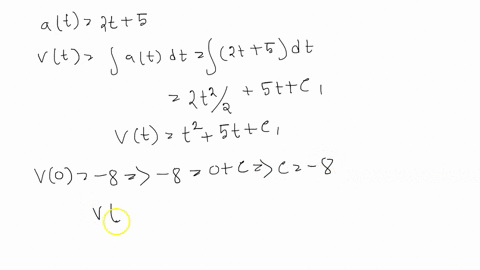 a(t) = 2t + 5
v(t) = ∫ a(t) dt = ∫ (2t + 5) dt
= 2t²/2 + 5t + C₁
v(t) = t² + 5t + C₁
v(0) = -8 => -8 = 0 + C => C = -8
v(